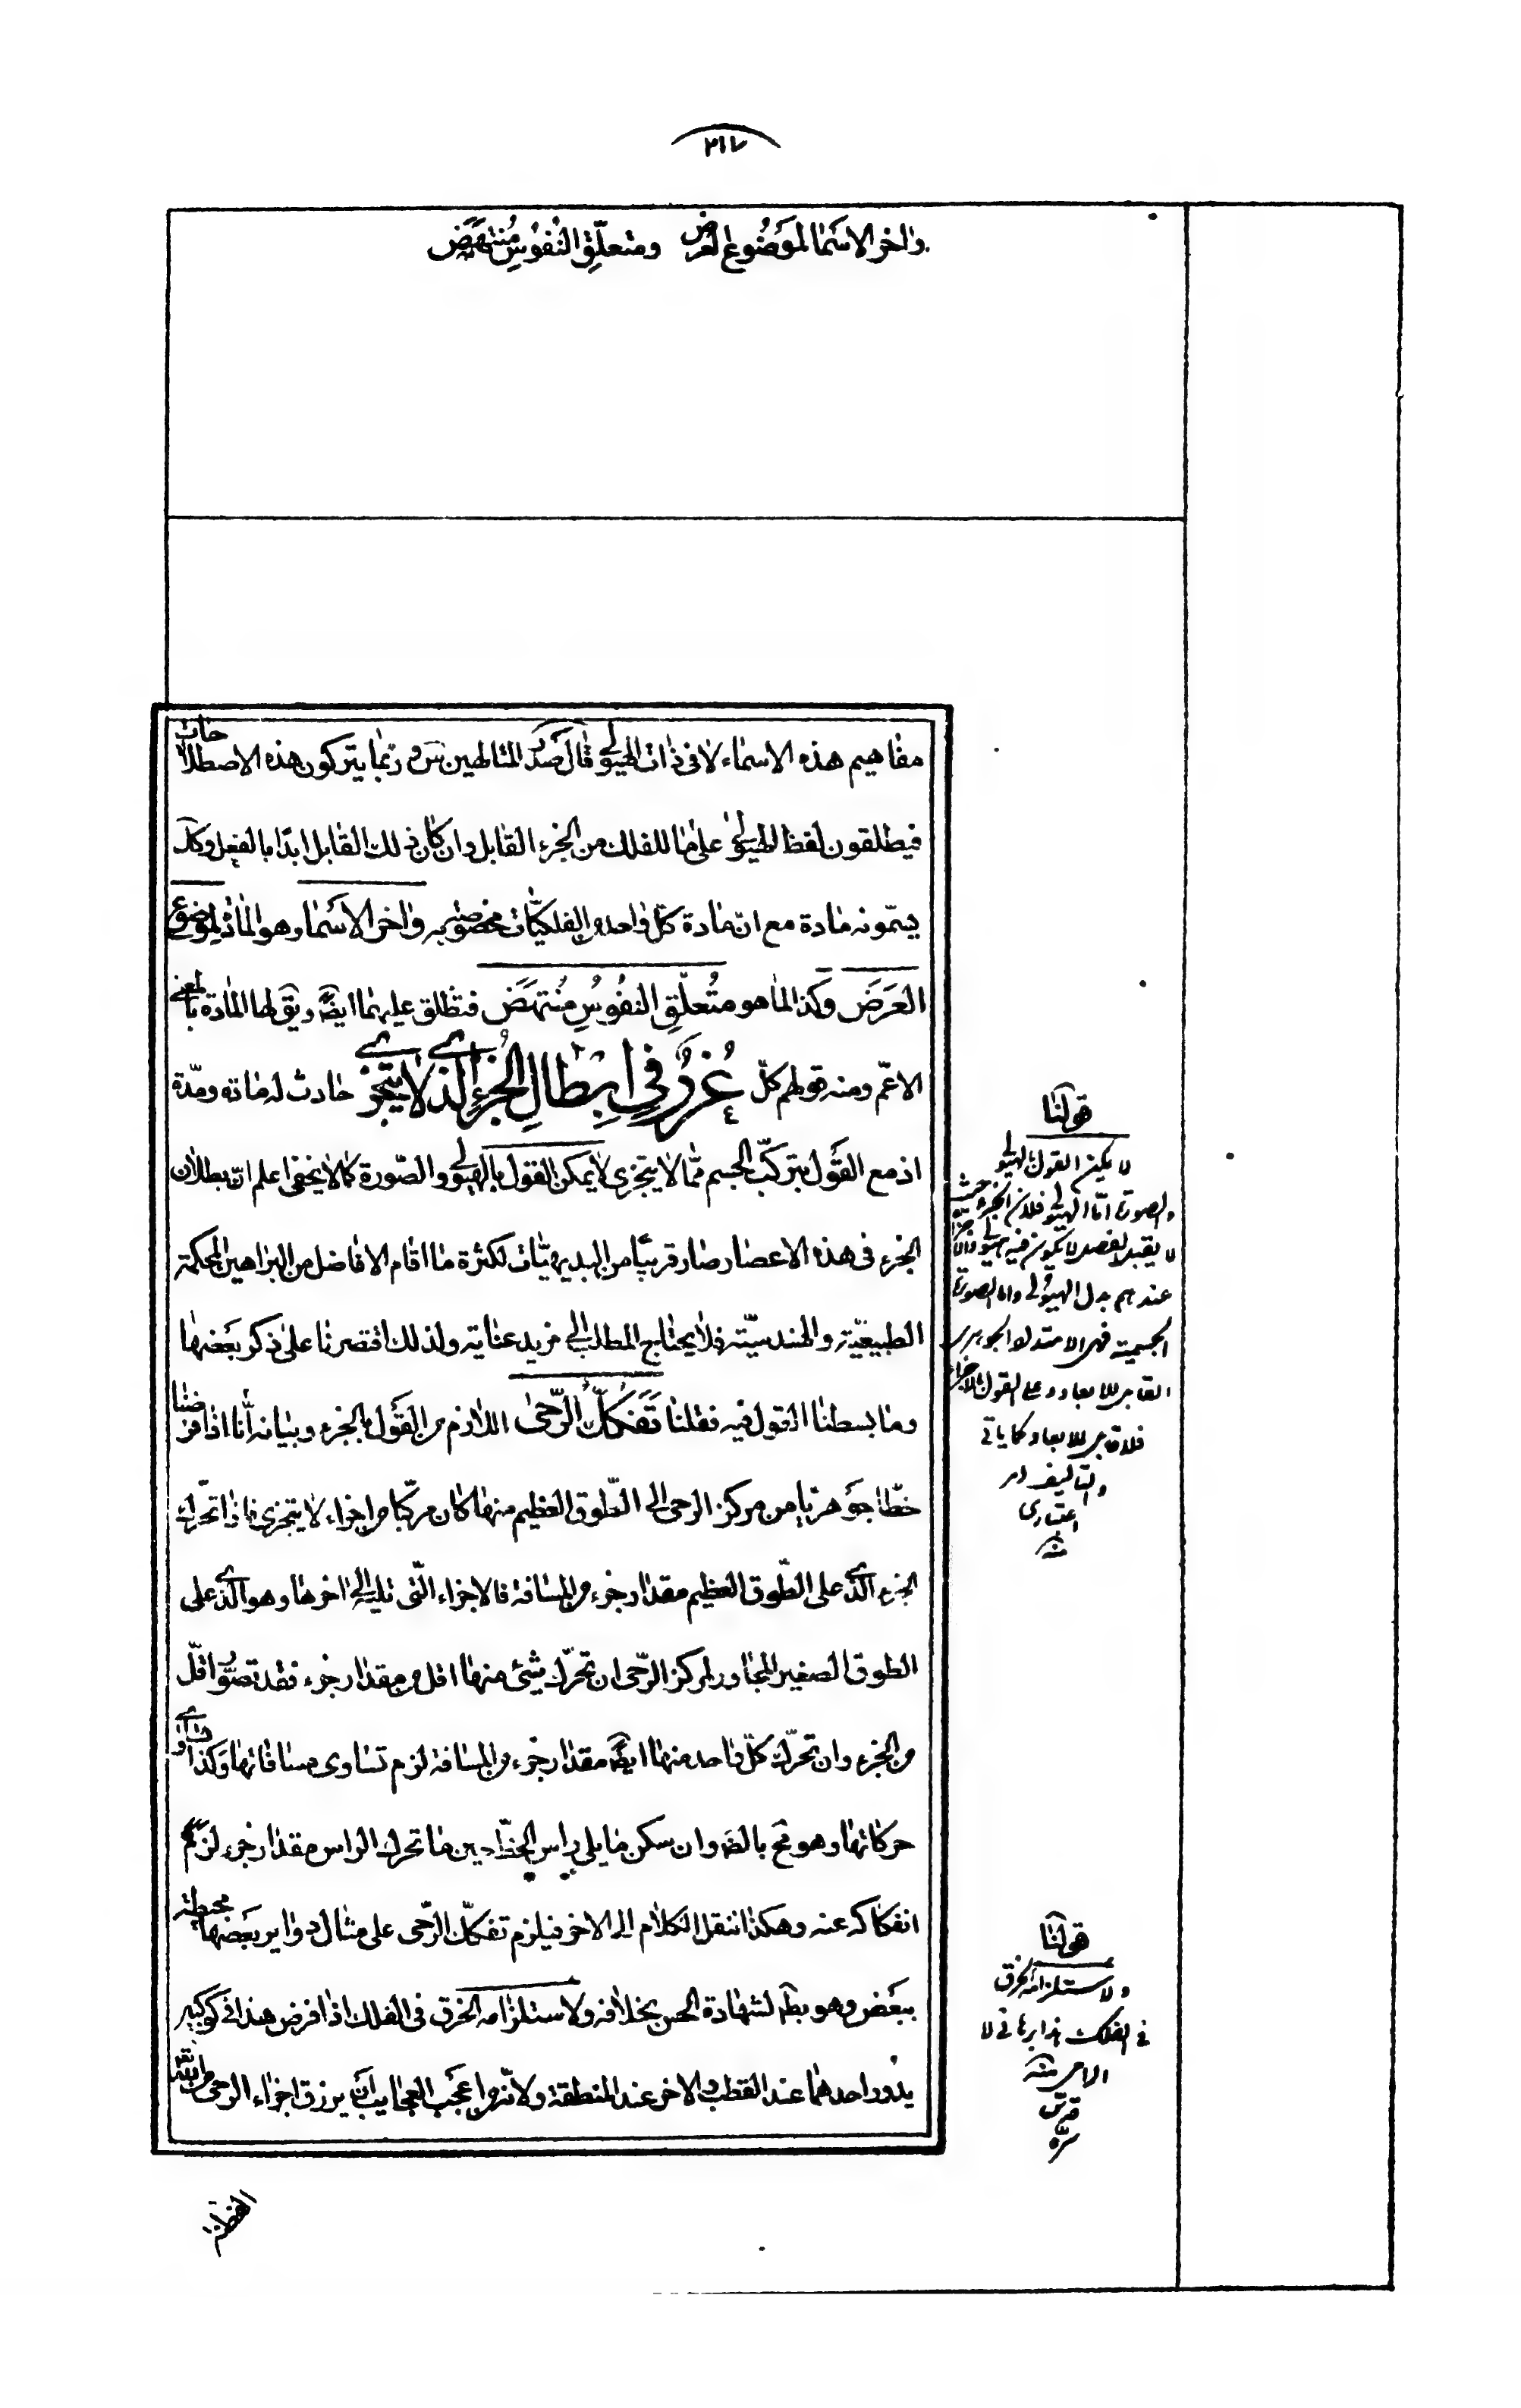 ٢١٧
واخر الاسما لموضوع العرض ومتعلّق النّفوس منتهض
مفاهيم هذه الاسماء لا فى ذات الهيولى قال صدر المتالهين س وربّما يتركون هذه الاصطلاحات
فيطلقون لفظ الهيولى على ما للفلك من الجزء القابل وان كان ذلك القابل ابدا بالفعل وكل
يسمّونه مادة مع انّ مادة كلّ واحد من الفلكيّات مخصوصة به واخر الاسما وهو المادّة لموضوع
العرض وكذا لما هو متعلّق النفوس منتهض فتطلق عليهما ايضً ويق لها المادة بالمعنى
الاعمّ ومنه قولهم كلّ حادث له مادة ومدّة
غرر فى ابطال الجزء الذى لا يتجزى
اذ مع القول بتركّب الجسم ممّا لا يتجزى لا يمكن القول بالهيولى والصّورة كما لا يخفى اعلم ان بطلان
الجزء فى هذه الاعصار صار قريبًا من البديهيّات لكثرة ما اقام الافاضل من البراهين المحكمة
الطبيعيّة والهندسيّة فلا يحتاج المطلب الى مزيد عناية ولذلك اقتصرنا على ذكر بعضها
وما بسطنا القول فيه فقلنا تفكّك الرّحى اللازم من القول بالجزء وبيانه أنّا اذا فرضنا
خطّا جوهريا من مركز الرحى الى الطّوق العظيم منها كان مركّبا من اجزاء لا يتجزى فاذا تحرّك
الجزء الذى على الطّوق العظيم مقدار جزء من المسافة فالاجزاء الّتى تليه الى اخرها وهو الذى على
الطوق الصغير المجاور لمركز الرّحى ان تحرّك شيئ منها اقل من مقدار جزء فقد تصوّر اقلّ
من الجزء وان تحرّك كلّ واحد منها ايضً مقدار جزء من المسافة لزم تساوى مسافاتها وكذا تساوى
حركاتها وهو مح بالضّ وان سكن ما يلى راس الخطّ حين ما تحرك الراس مقدار جزء لزم
انفكاكه عنه وهكذا ننقل الكلام الى الاخر فيلزم تفكّك الرّحى على مثال دواير بعضها محيطة
ببعض وهو بط لشهادة الحس بخلافه ولاستلزامه الخرق فى الفلك اذا فرض هذا فى كوكبين
يدور احدهما عند القطب والاخر عند المنطقة ولانّه من اعجب العجايب ان يرزق اجزاء الرحى من الله
الفطنة
قولنا
لا يمكن القول بالهيولى
والصورة امّا الهيولى فلان الجزء حيث
لا يقبل الفصل لا يكون فيه هيولى والاجزاء
عندهم بدل الهيولى واما الصورة
الجسمية فهى الامتداد الجوهرى
القابل للابعاد وعلى القول بالاجزاء
فلا قابل للابعاد كما ياتى
والتاليف امر
اعتبارى
منه
قولنا
ولاستلزامه الخرق
فى الفلك هذا برهانى لا
الامر منه
قدس
سره